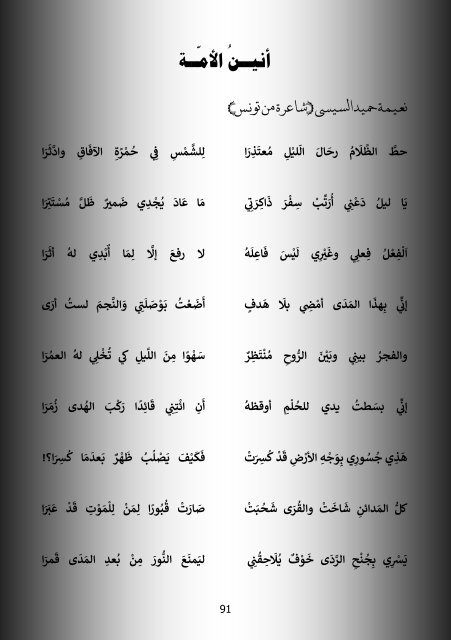 أنيــنُ الأمّــة
نعيمة حميد السيسي ﴿شاعرة من تونس﴾
حطَّ الظَّلَامُ رحَالَ الَليْلِ مُعتَذِرَا لِلشَّمْسِ فِي حُمْرَةِ الآفَاقِ وادَّثَرَا
يَا ليلُ دَعْنِي أُرَتِّبْ سِفْرَ ذَاكِرَتِي مَا عَادَ يُجْدِي ضَميرٌ ظَلَّ مُسْتَتِرَا
اَلْفِعْلُ فِعلِي وغَيْرِي لَيْسَ فَاعِلَهُ لا رفعَ إلَّا لِمَا أُبْدِي لهُ أثَرَا
إنِّي بِهذَا المَدَى أمْضِي بلَا هَدفٍ أضَعْتُ بَوْصَلَتِي وَالنَّجمَ لستُ أرَى
والفجرُ بيني وبَيْنَ الرُّوحِ مُنْتَظِرٌ سَهْوًا مِنَ اللَّيلِ كي تُخْلِي لهُ العمُرَا
إنِّي بسَطتُ يدي للحُلْمِ أوقظهُ أَنِ ائتِنِي قَائِدًا رَكْبَ الهُدى زُمَرَا
هَذِي جُسُورِي بِوَجْهِ الأرْضِ قَدْ كُسِرَتْ فَكَيْفَ يَصْلُبُ ظَهْرٌ بَعدَمَا كُسِرَا؟!
كلُّ المَدائنِ شَاخَتْ والقُرَى شَحُبَتْ صَارَتْ قُبُورًا لِمَنْ لِلْمَوْتِ قَدْ عَبَرَا
يَسْرِي بِجُنْحِ الرَّدَى خَوْفٌ يُلَاحِقُنِي ليَمنَعَ النُّورَ مِنْ بُعدِ المَدَى قَمرَا
91